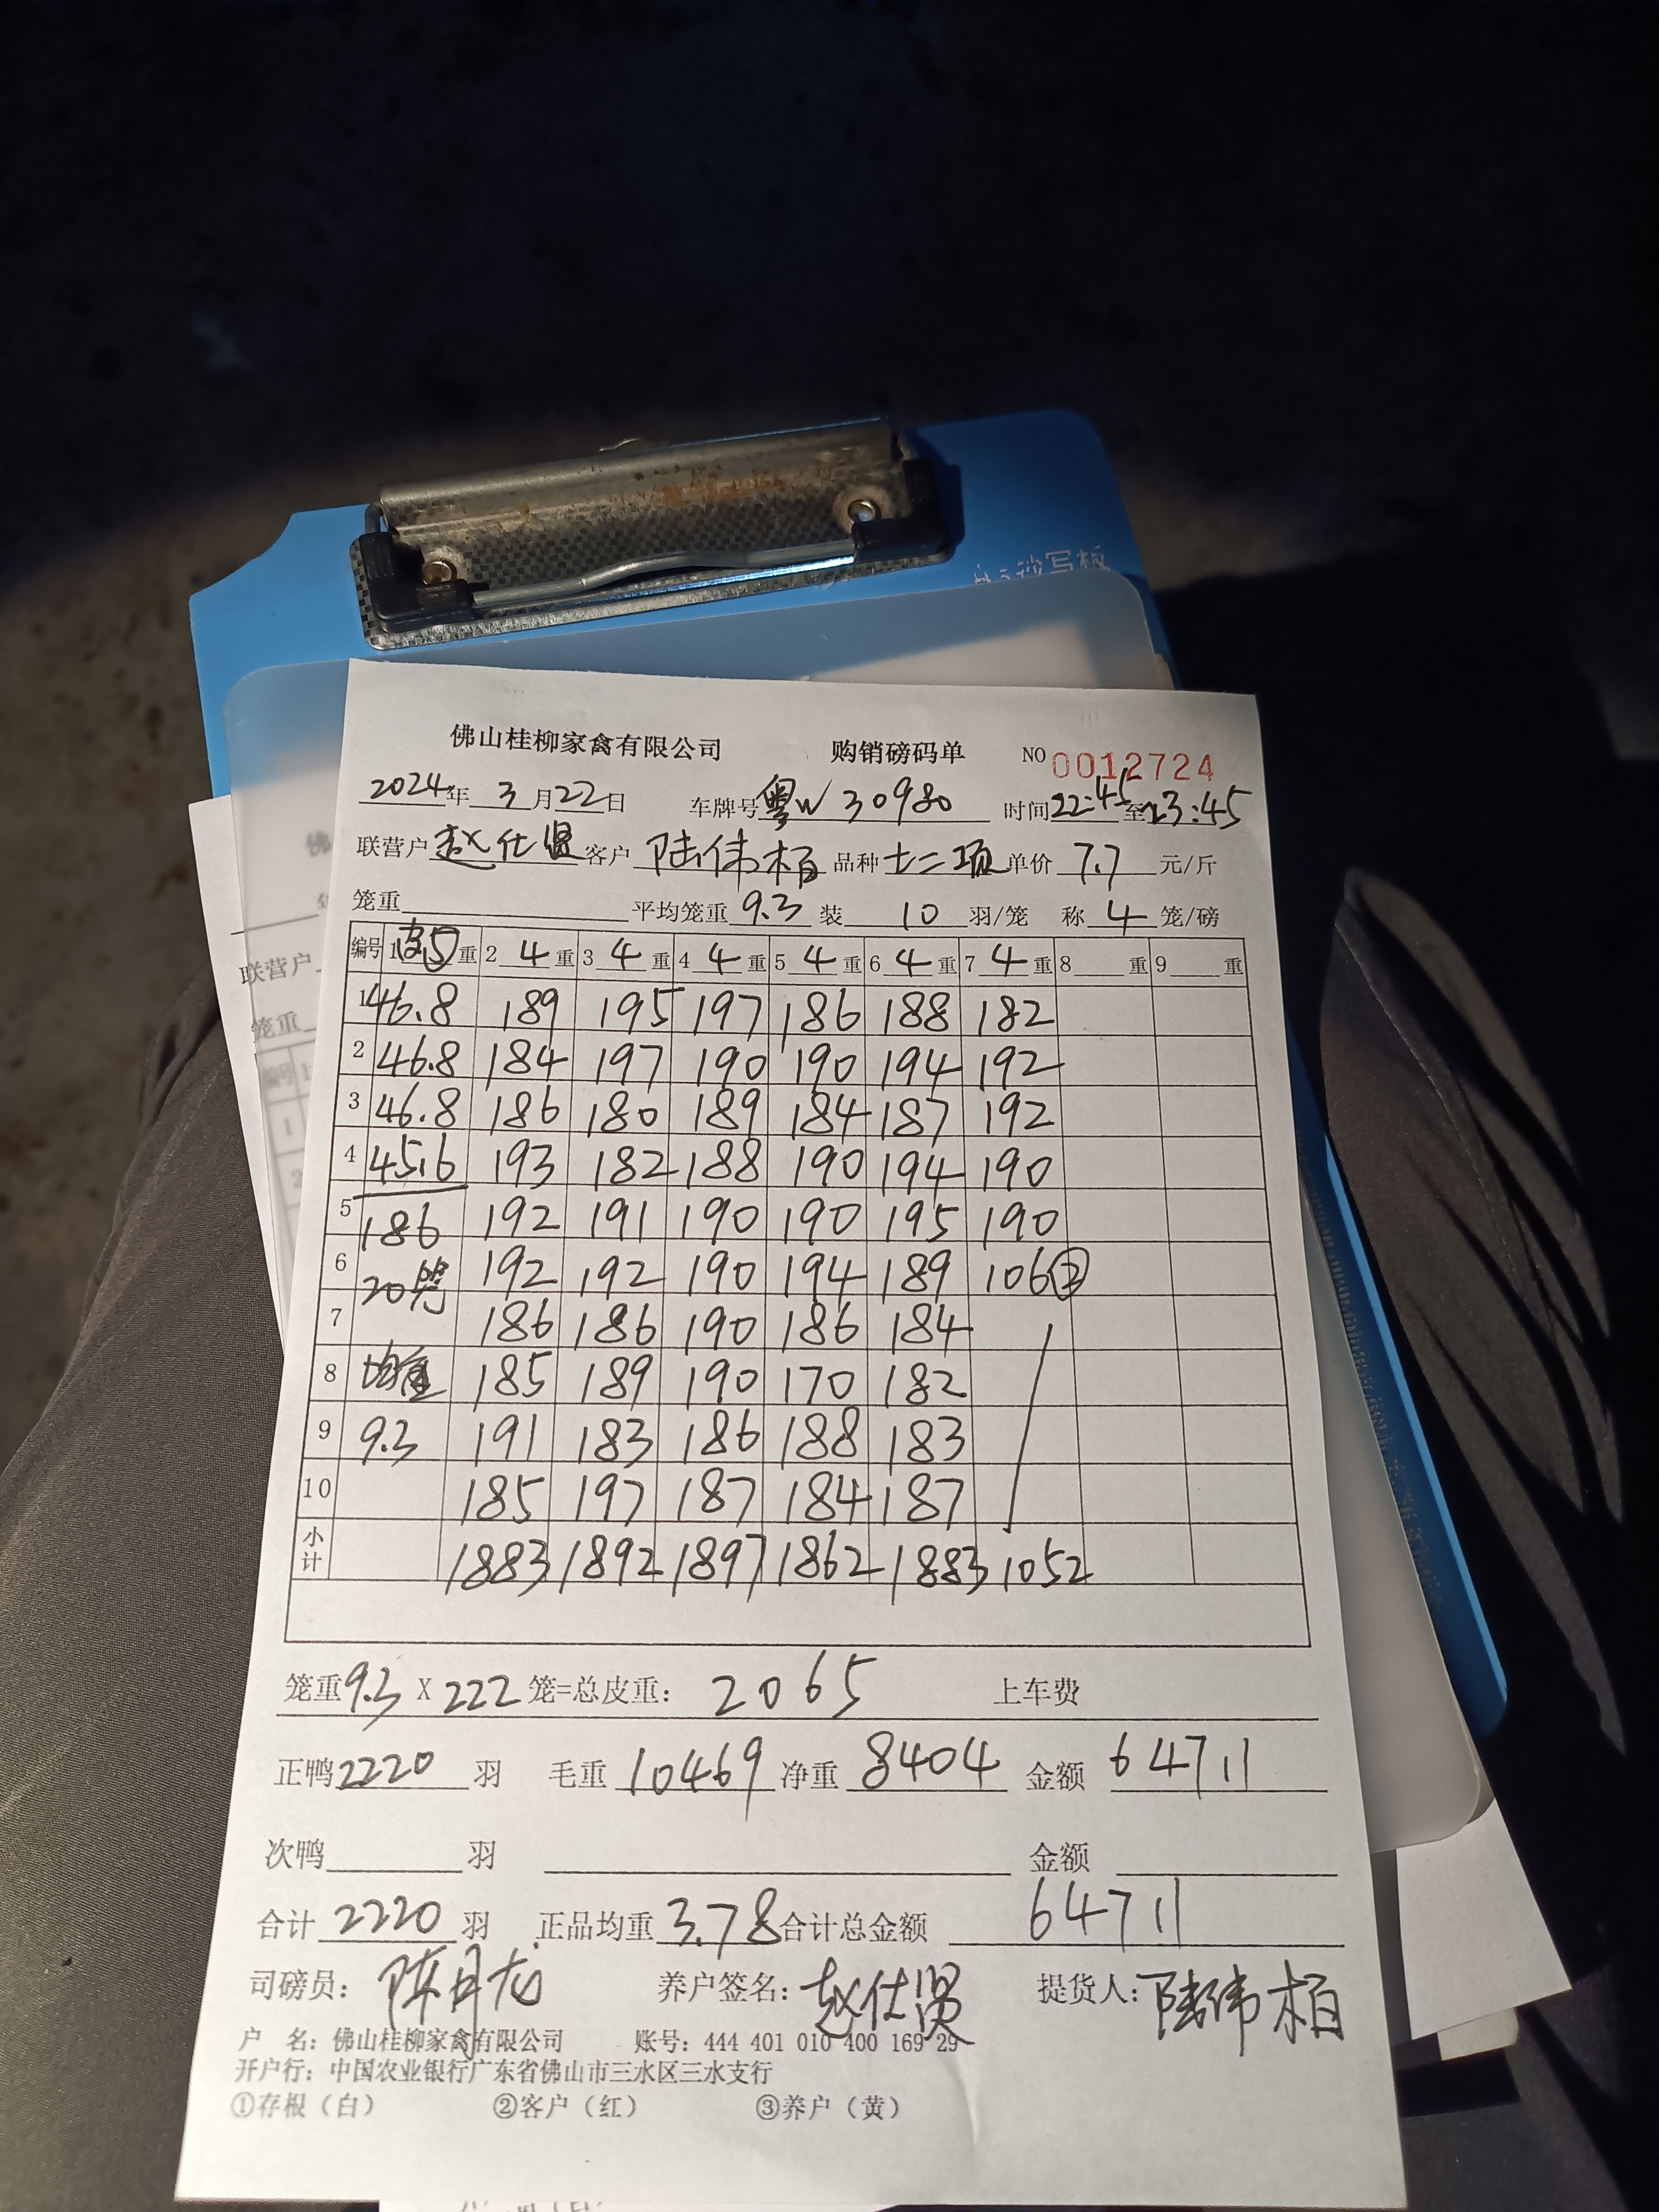 佛山桂柳家禽有限公司 购销磅码单 NO 0012724
2024年 3月22日 车牌号粤W30980 时间22:45至23:45
联营户赵仕贤 客户陆伟柏 品种七二项 单价7.7元/斤
笼重 平均笼重9.3 装10羽/笼 称4笼/磅
编号 1皮5重 2 4重 3 4重 4 4重 5 4重 6 4重 7 4重 8 重 9 重
1 46.8 189 195 197 186 188 182
2 46.8 184 197 190 190 194 192
3 46.8 186 180 189 184 187 192
4 45.6 193 182 188 190 194 190
5 186 192 191 190 190 195 190
6 20笼 192 192 190 194 189 106②
7 186 186 190 186 184
8 均重 185 189 190 170 182
9 9.3 191 183 186 188 183
10 185 197 187 184 187
小计 1883 1892 1897 1862 1883 1052
笼重9.3 X 222笼=总皮重: 2065 上车费
正鸭2220羽 毛重10469 净重8404 金额64711
次鸭 羽 金额
合计2220羽 正品均重3.78 合计总金额 64711
司磅员: 陈月龙 养户签名: 赵仕贤 提货人: 陆伟柏
户 名: 佛山桂柳家禽有限公司 账号: 444 401 010 400 169 29
开户行: 中国农业银行广东省佛山市三水区三水支行
①存根（白） ②客户（红） ③养户（黄）